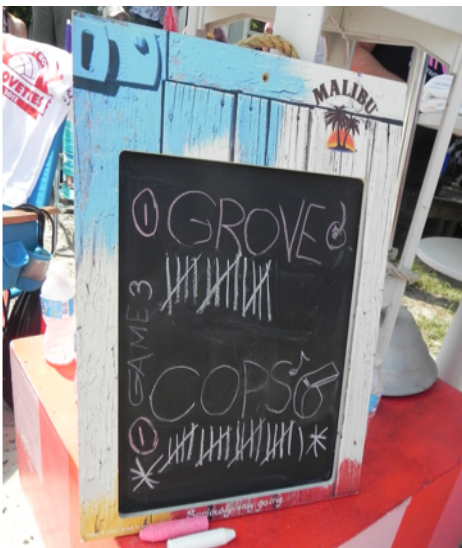 MALIBU
① GROVE
GAME 3
① COPS
Seriously easy going